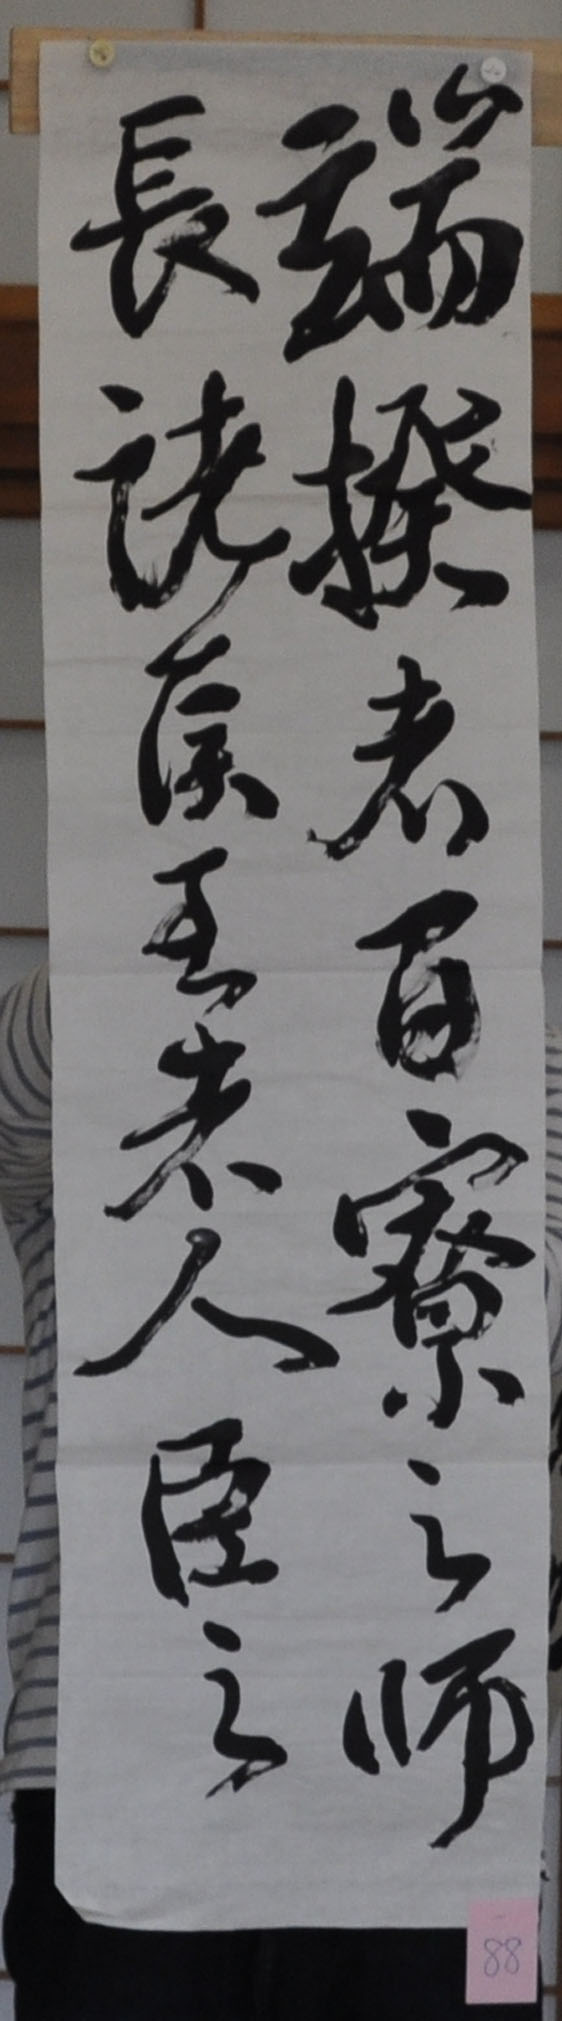 端揆者百寮之師
長諸侯王者人臣之
88